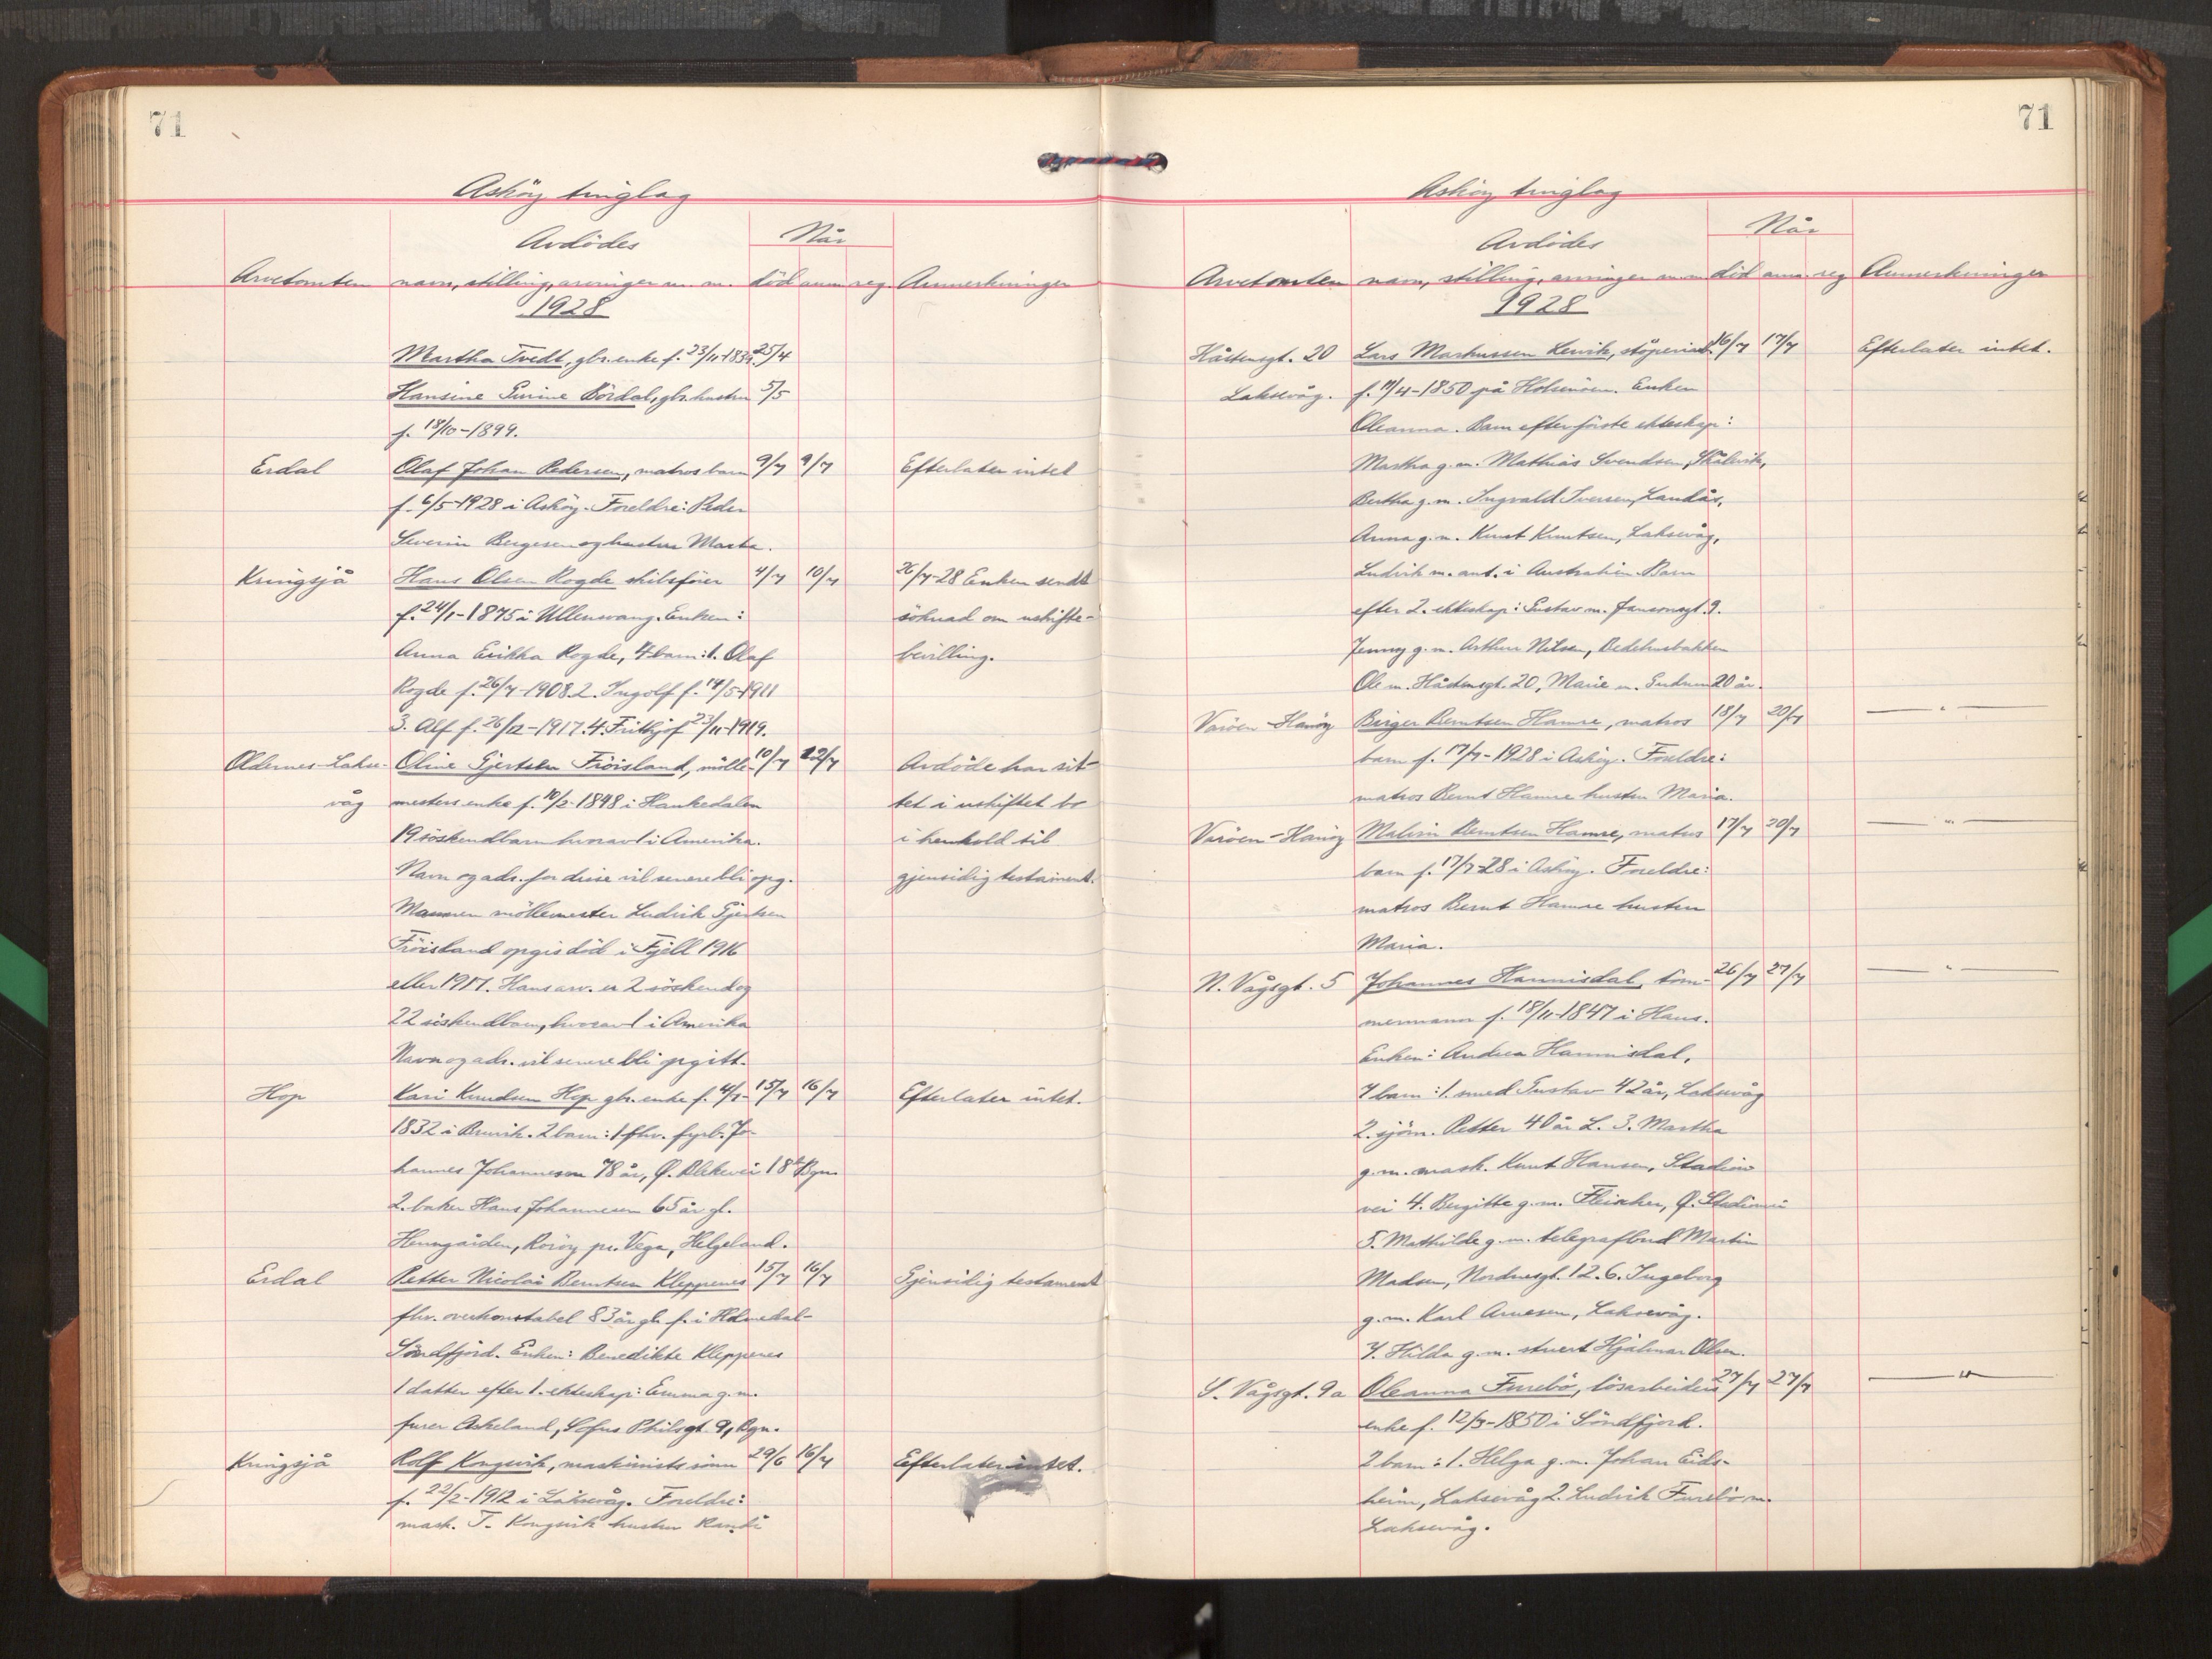 71
Asköy tinglag
Avdödes
Når
Arvetomten navn, stilling, arvinger m. m. död anm. reg. Anmerkninger
1928
Martha Tvedt, gbr. enke f. 23/11-1839. 25/4
Hansine Bördal, gbr. hustru 5/5
f. 18/10-1899.
Erdal Olaf Johan Pedersen, matros barn 9/7 9/7 Efterlater intet
f. 6/5-1928 i Asköy. Foreldre: Peder
Severin Bergesen og hustru Marta.
Kringsjå Hans Olsen Rogde skibsförer 4/7 10/7 26/7-28 Enken sendt
f. 24/1-1875 i Ullensvang. Enken: söknad om uskifte-
Anna Erikka Rogde, 4 barn: 1. Olaf bevilling.
Rogde f. 26/7-1908. 2. Ingolf f. 14/5-1911
3. Alf f. 26/12-1917. 4. Frithjof 23/11-1919.
Oldernes-Lakse- Oline Gjertsen Fröisland, mölle- 10/7 12/7 Avdöde har sit-
våg mesters enke f. 10/2-1848 i Haukedalen tet i uskiftet bo
19 söskendbarn hvorav 1 i Amerika. i henhold til
Navn og adr. for disse vil senere bli opg. gjensidig testament.
Mannen möllemester Ludvik Gjertsen
Fröisland opgis död i Fjell 1916
eller 1917. Hans arv. er 2 söskend og
22 söskendbarn, hvorav 1 i Amerika
Navn og adr. vil senere bli opgitt.
Hop Kari Knudsen Hop gbr. enke f. 4/1- 15/7 16/7 Efterlater intet.
1832 i Bruvik. 2 barn: 1 fhv. fyrb. Jo-
hannes Johannesen 78 år, Ø. Blekevei 18 Bgn.
2. baker Hans Johannesen 65 år gl.
Heungården, Roröy pr. Vega, Helgeland.
Erdal Petter Nicolai Berntsen Kleppenes 15/7 16/7 Gjensidig testament
fhv. overkonstabel 83 år gl. f. i Holmedal-
Söndfjord. Enken: Benedikte Kleppenes
1 datter efter 1. ekteskap: Emma g. m.
furer Askeland, Sofus Philsgt. 9, Bgn.
Kringsjå Rolf Kongsvik, maskinists sönn 29/6 16/7 Efterlater intet.
f. 22/2-1912 i Laksevåg. Foreldre:
mask. T. Kongsvik hustru Randi
71
Asköy tinglag
Avdödes
Når
Arvetomten navn, stilling, arvinger m. m. död anm. reg Anmerkninger
1928
Håsteinsgt. 20 Lars Markussen Lervik, stöperiarb. 16/7 17/7 Efterlater intet.
Laksevåg. f. 11/4-1850 på Holsenöen. Enken
Oleanna. Barn efter förste ekteskap:
Martha g. m. Mathias Svendsen, Skålevik,
Bertha g. m. Ingvald Iversen, Landås,
Anna g. m. Knut Knutsen, Laksevåg,
Ludvik m. ant. i Australien. Barn
efter 2. ekteskap: Gustav m. Jansonsgt. 9.
Jenny g. m. Arthur Nilsen, Bedehusbakken
Ole m. Håsteinsgt. 20, Marie m. Gudrun 20 år.
Varöen-Hanöy Birger Berntsen Hamre, matros 18/7 20/7 — " —
barn f. 17/7-1928 i Asköy. Foreldre:
matros Bernt Hamre hustru Maria.
Varöen-Hanöy Malvin Berntsen Hamre, matros 17/7 20/7 — " —
barn f. 17/7-28 i Asköy. Foreldre:
matros Bernt Hamre hustru
Maria.
N. Vågsgt. 5 Johannes Hannisdal, töm- 26/7 27/7 — " —
mermann f. 18/11-1847 i Haus.
Enken: Andrea Hannisdal.
7 barn: 1. smed Gustav 42 år, Laksevåg
2. sjöm. Petter 40 år L. 3. Martha
g. m. mask. Knut Hansen, Stadion
vei 4. Bergitte g. m. Fleischer, Ø. Stadionvei
5. Mathilde g. m. telegrafbud Martin
Madsen, Nordnesgt. 12. 6. Ingeborg
g. m. Karl Arnesen, Laksevåg.
7. Hilda g. m. stuert Hjalmar Olsen.
S. Vågsgt. 9a Oleanna Furebö, lösarbeiders 27/7 27/7 — " —
enke f. 12/3-1850 i Söndfjord.
2 barn: 1. Helga g. m. Johan Eids-
heim, Laksevåg 2. Ludvik Furebö m.
Laksevåg.